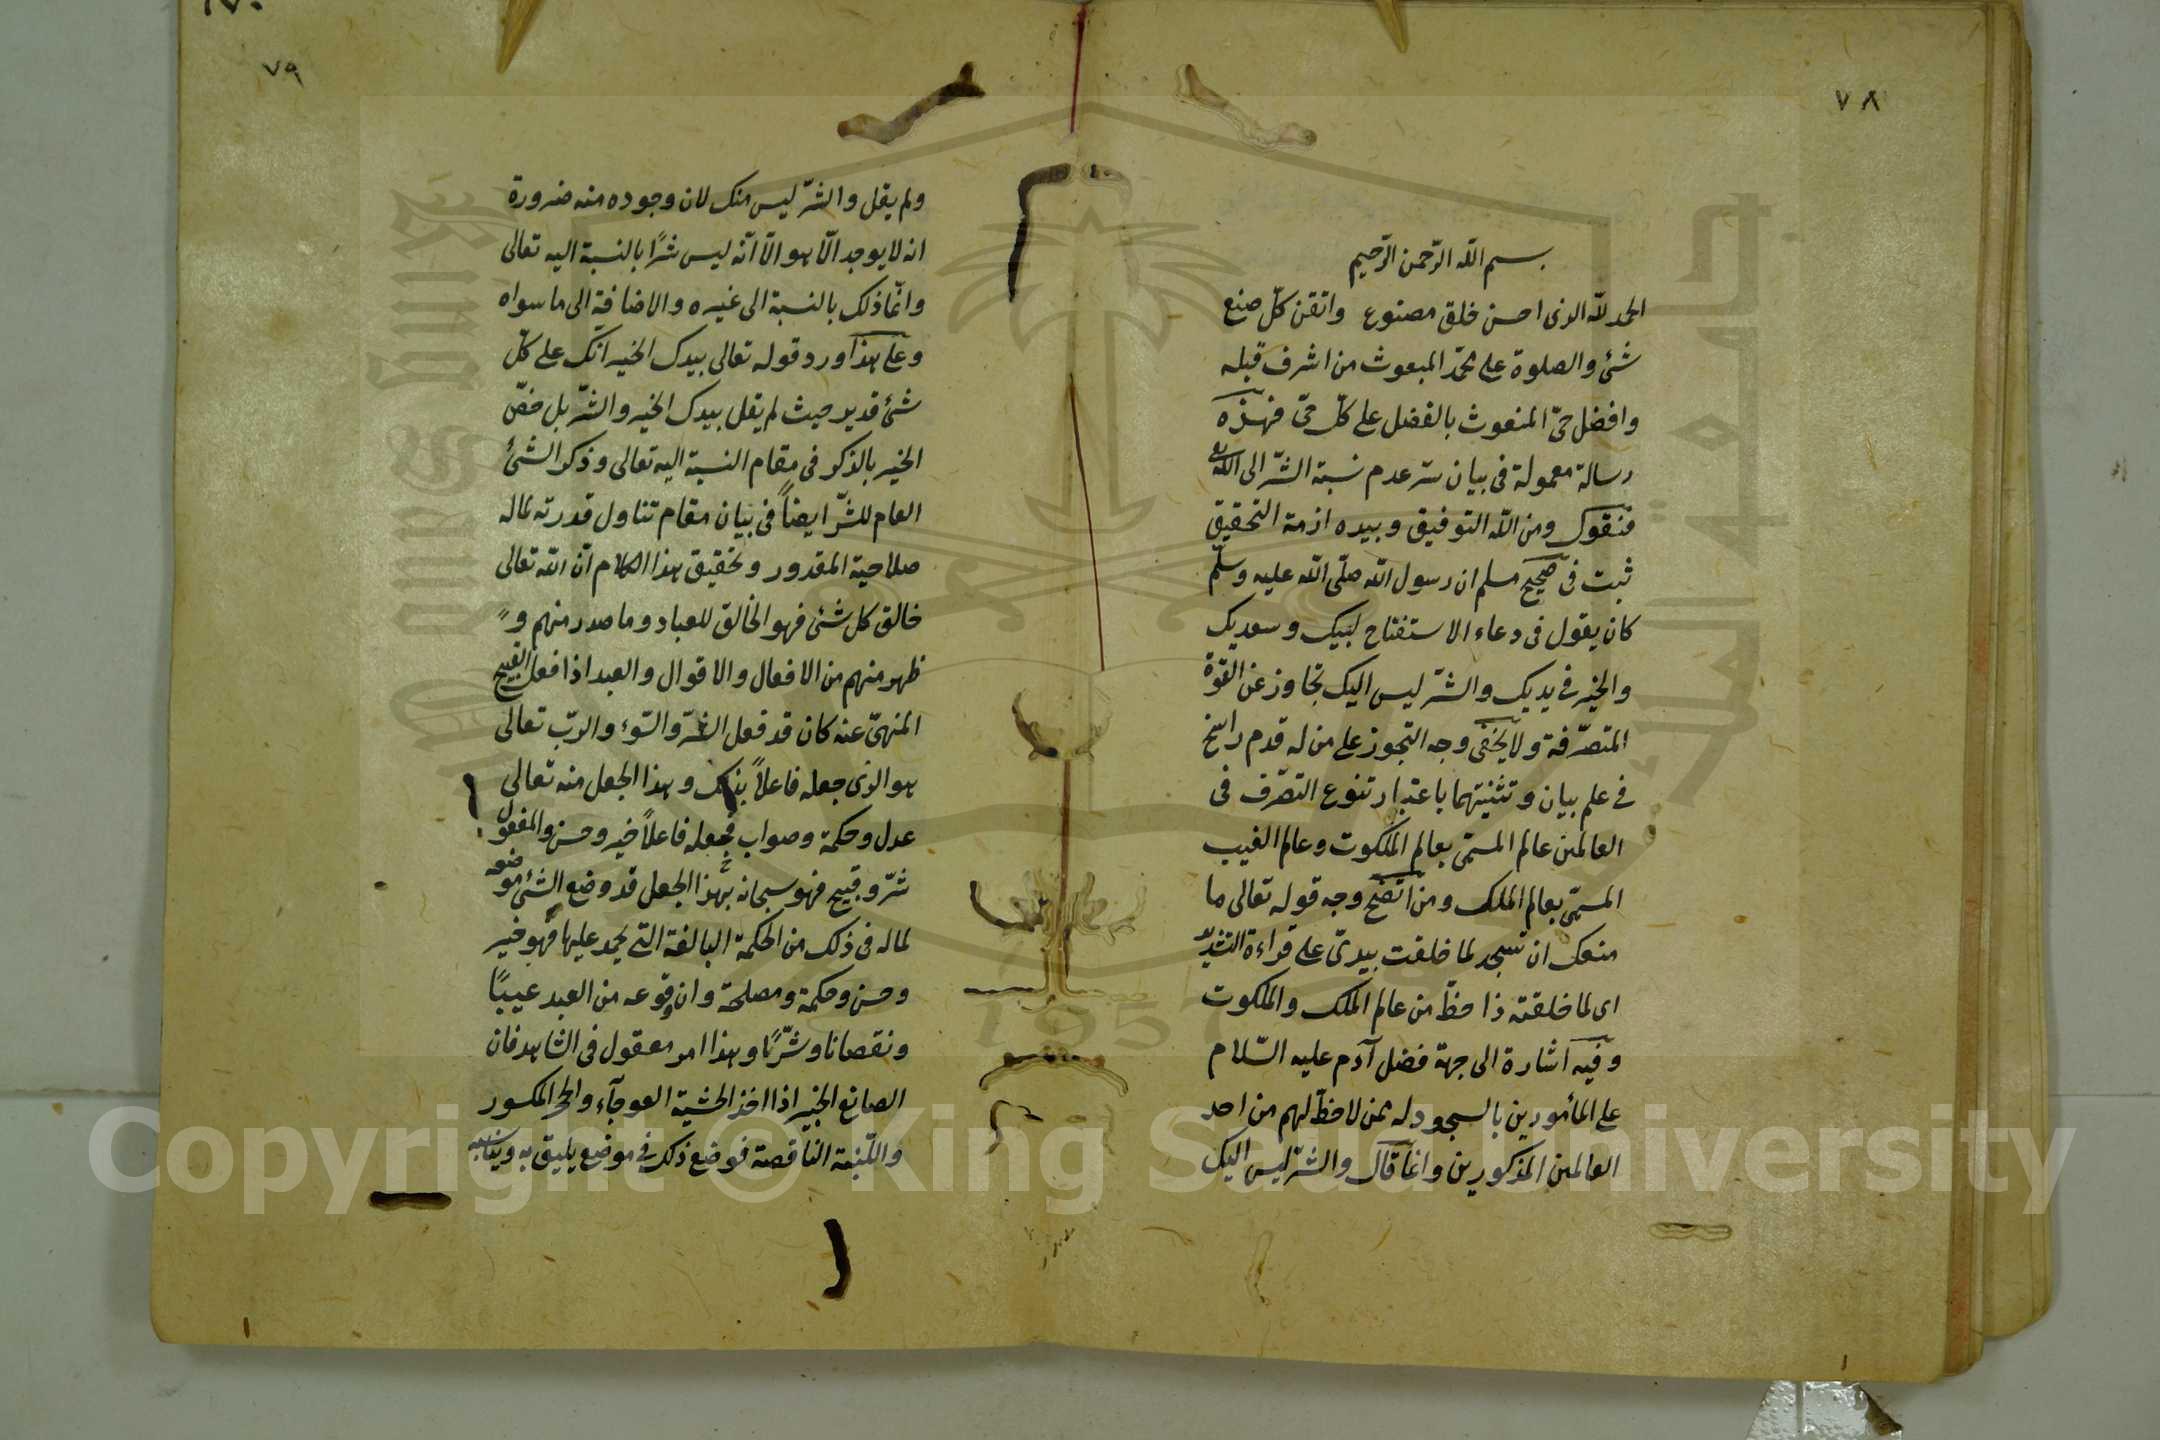 ٧٨
بسم الله الرّحمن الرّحيم
الحمد لله الذى احسن خلق مصنوع واتقن كلّ صنع
شئ والصلوة على محمّد المبعوث من اشرف قبله
وافضل حىّ المنعوث بالفضل على كلّ حىّ فهذه
رسالة معمولة فى بيان سرّ عدم نسبة الشرّ الى الله تع
فنقول ومن الله التوفيق وبيده ازمة التحقيق
ثبت فى صحيح مسلم ان رسول الله صلّى الله عليه وسلّم
كان يقول فى دعاء الاستفتاح لبيك وسعديك
والخير فى يديك والشرّ ليس اليك تجاوز عن القوّة
المتصرّفة ولا يخفى وجه التجوز على من له قدم راسخ
فى علم بيان وتثنيتهما باعتبار تنوع التصرّف فى
العالمين عالم المسمّى بعالم الملكوت وعالم الغيب
المسمّى بعالم الملك ومن اتضح وجه قوله تعالى ما
منعك ان تسجد لما خلقت بيدىّ على قراءة التشديد
اى لما خلقته ذا حظّ من عالم الملك والملكوت
وفيه اشارة الى جهة فضل آدم عليه السّلام
على المأمورين بالسجود له ممن لا حظّ لهم من احد
العالمين المذكورين وانما قال والشرّ ليس اليك
٧٩
ولم يقل والشرّ ليس منك لان وجوده منه ضرورة
انه لا يوجد الّا هو الّا انّه ليس شرًا بالنسبة اليه تعالى
وانّما ذلك بالنسبة الى غيره والاضافة الى ما سواه
وعلى هذا ورد قوله تعالى بيدك الخير انّك على كلّ
شئ قدير حيث لم يقل بيدك الخير والشرّ بل خصّ
الخير بالذكر فى مقام النسبة اليه تعالى وذكر الشئ
العام للشرّ ايضاً فى بيان مقام تناول قدرته لماله
صلاحية المقدور وتحقيق هذا الكلام انّ الله تعالى
خالق كل شئ فهو الخالق للعباد وما صدر منهم و
ظهر منهم من الافعال والاقوال والعبد اذا فعل القبيح
المنهىّ عنه كان قد فعل الشرّ والسّوء والربّ تعالى
هو الذى جعله فاعلاً بذلك وهذا الجعل منه تعالى
عدل وحكمة وصواب فجعله فاعلاً خير وحسن والمفعول
شرّ وقبيح فهو سبحانه بهذا الجعل قد وضع الشئ موضعه
لماله فى ذلك من الحكمة البالغة التى يحمد عليها فهو خير
وحسن وحكمة ومصلحة وان وقوعه من العبد عيبًا
ونقصانا وشرًّا وهذا امر معقول فى الشاهد فان
الصانع الخبير اذا اخذ الخشبة العوجآء والحجر المكسور
واللّبنة الناقصة فوضع ذلك فى موضع يليق به ويناسبه
Copyright © King Saud University
King Saud University
جامعة الملك سعود
1957